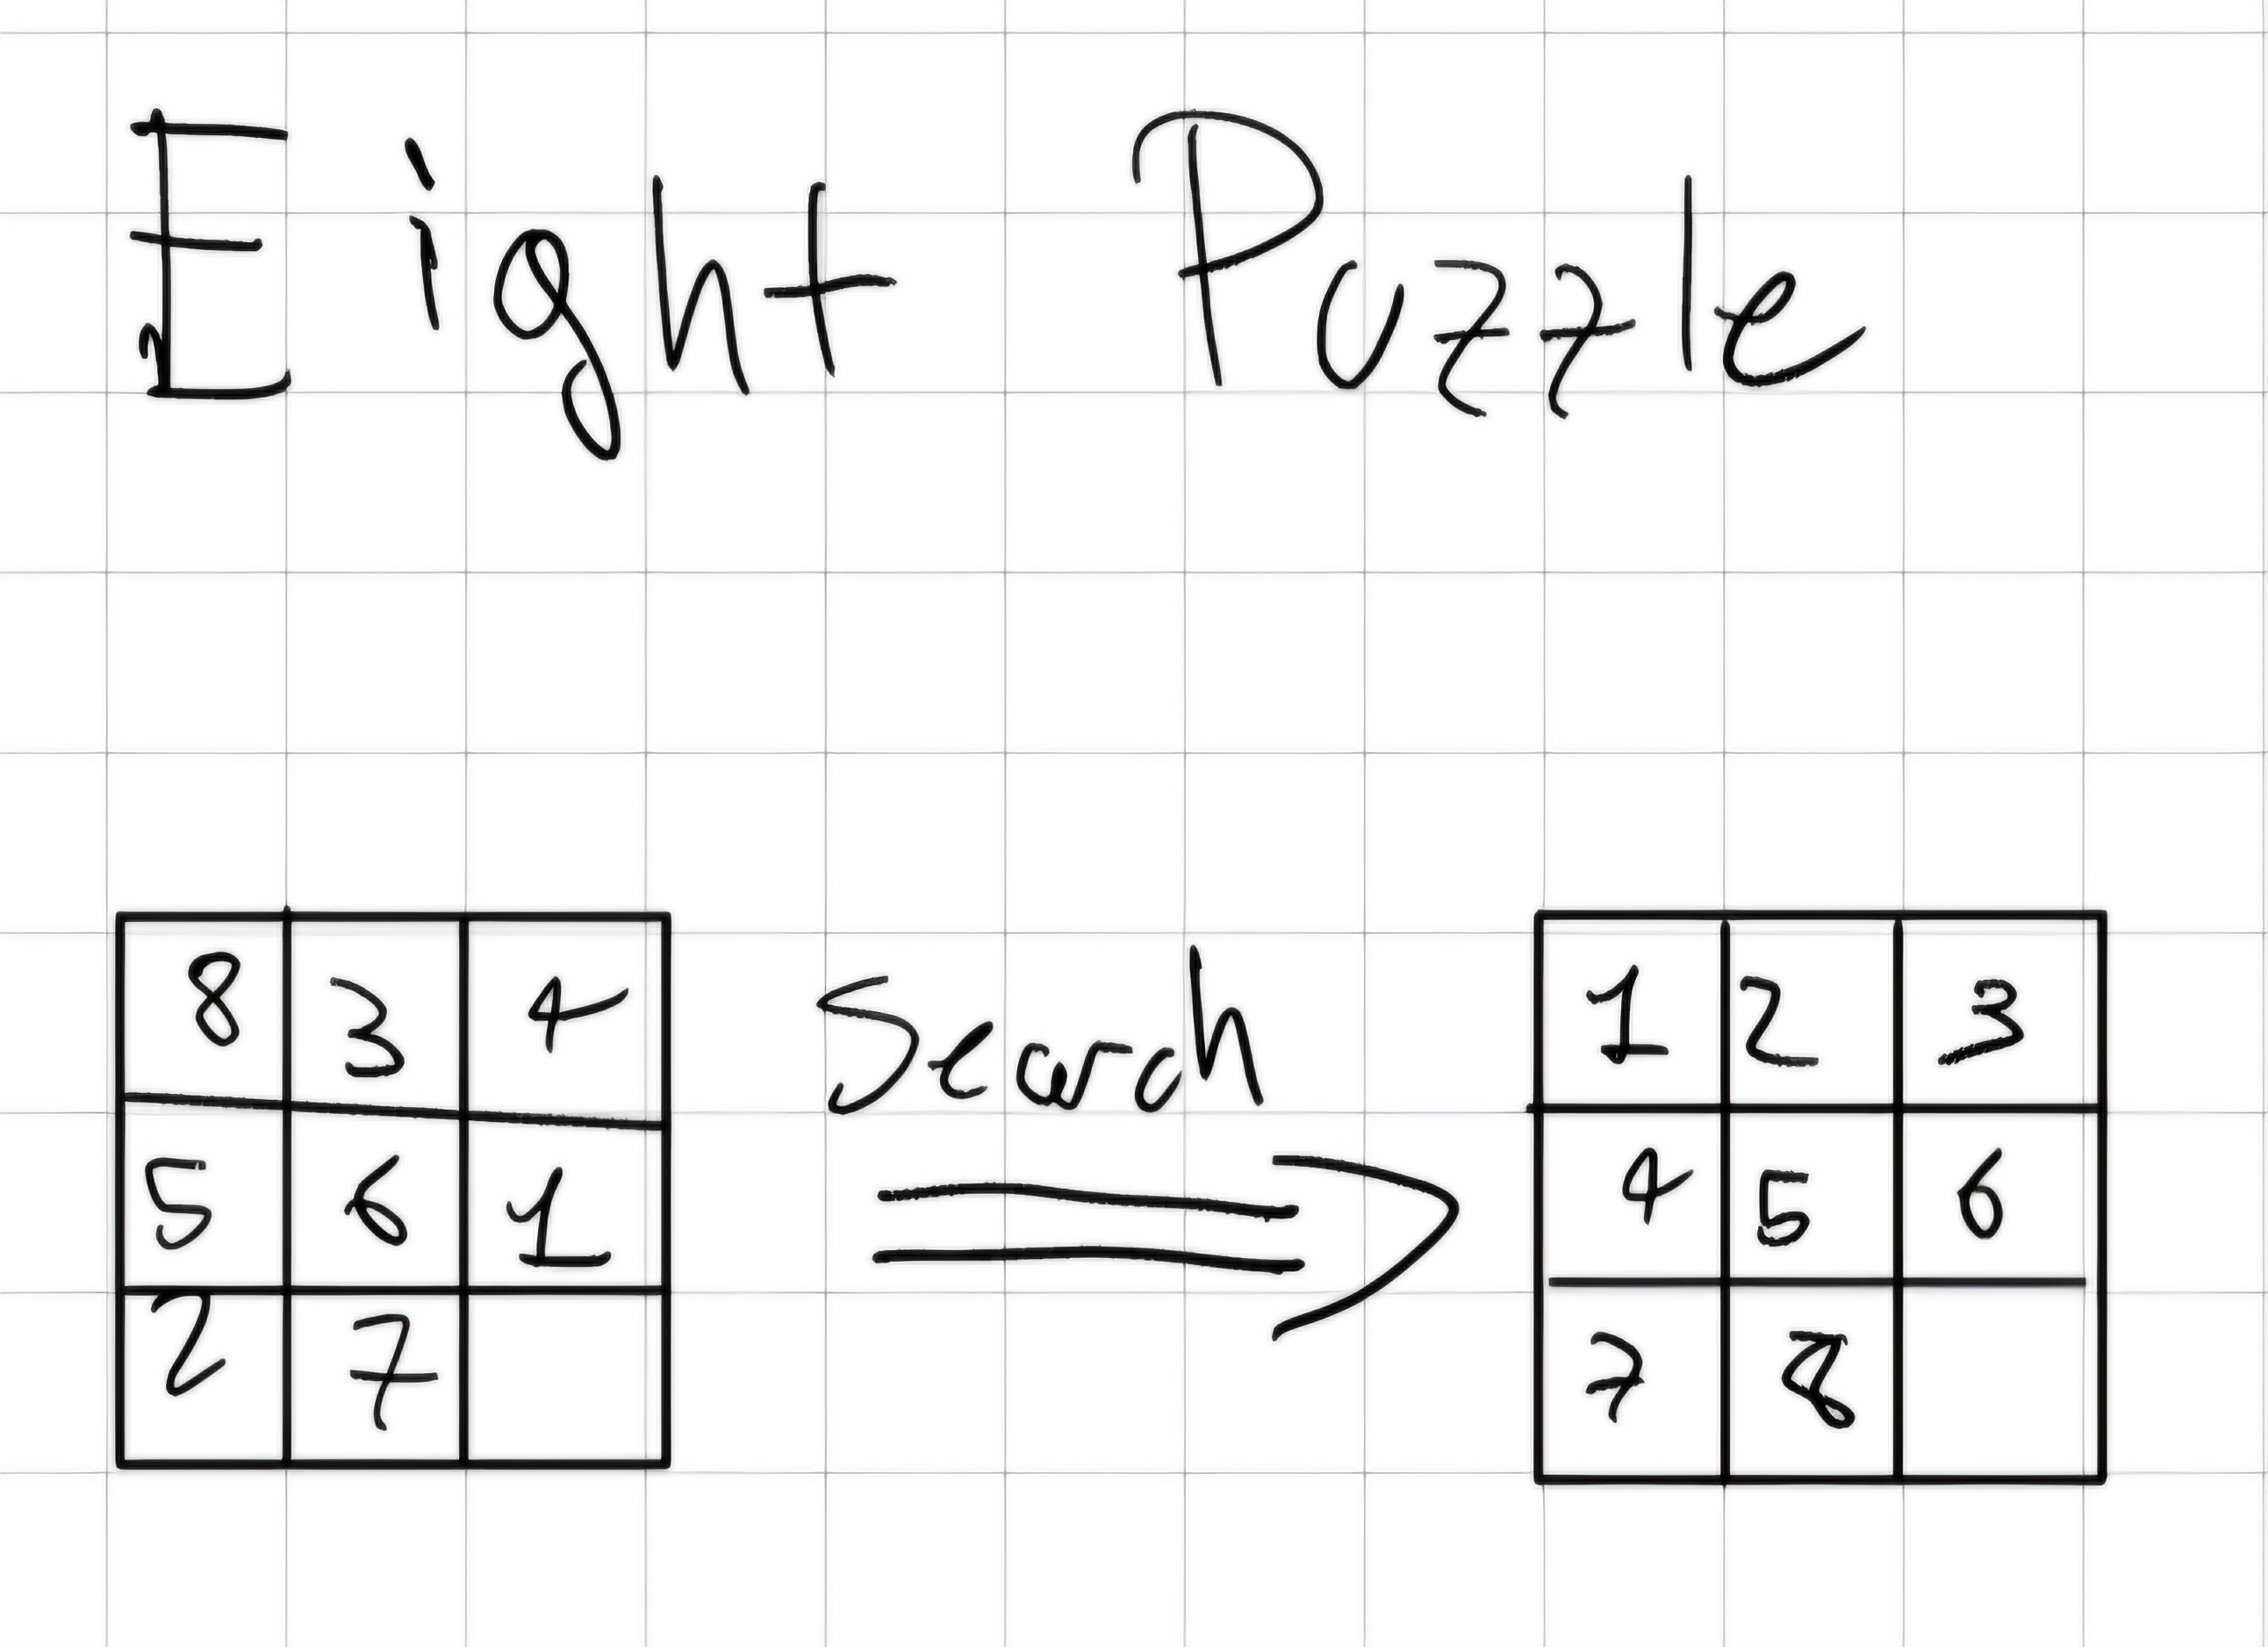 Eight Puzzle
8 3 4
5 6 1
2 7
Search
1 2 3
4 5 6
7 8